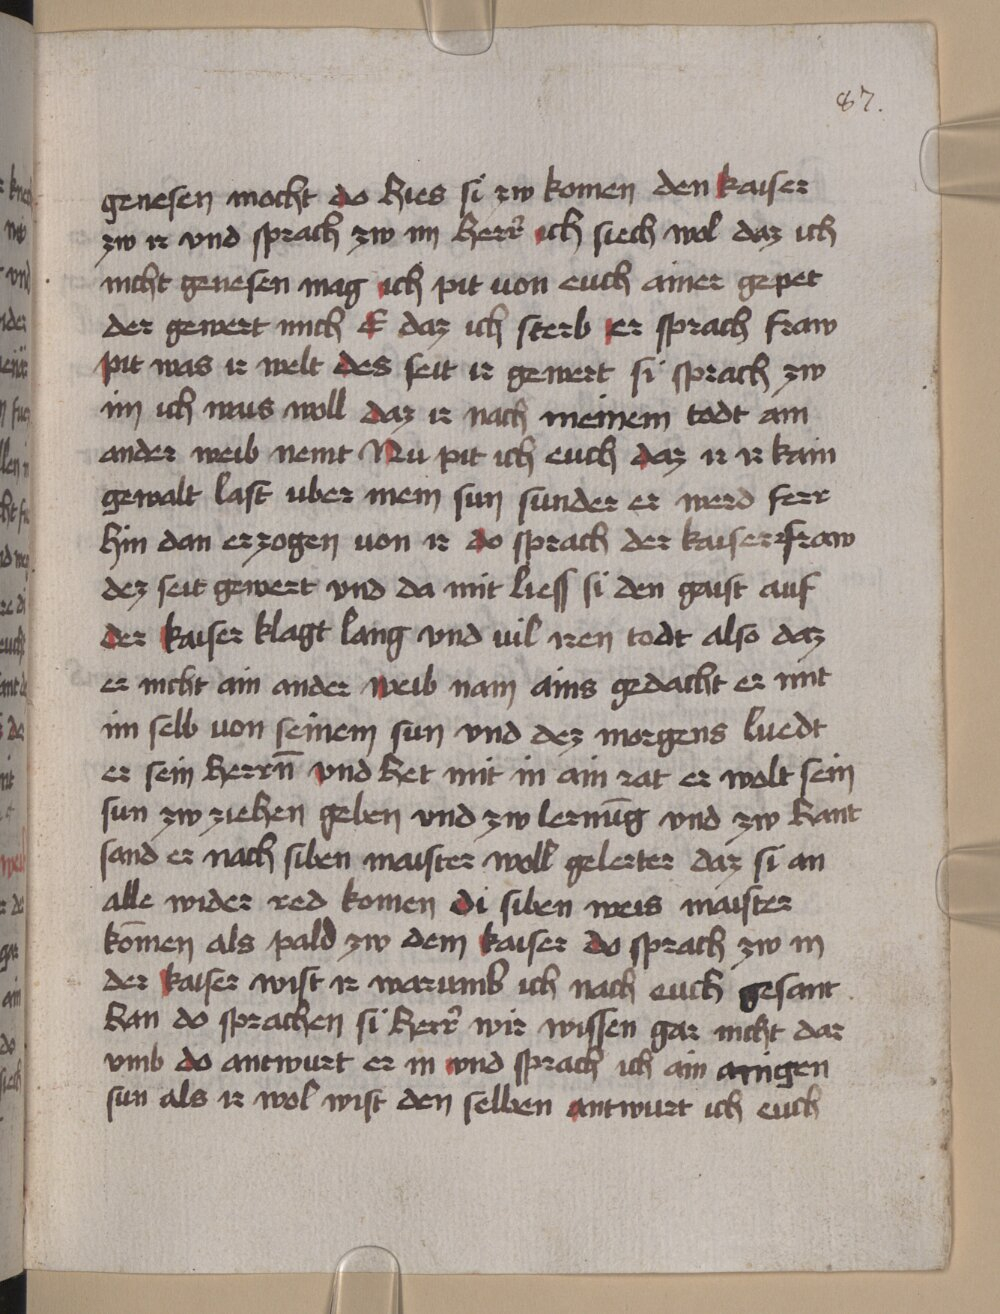 87.
genesen mocht do hies si zw komen den kaiser
zw ir vnd sprach zw im herr̃ ich siech wol daz ich
nicht genesen mag ich pit von euch ainer gepet
der gewert mich E daz ich sterb er sprach fraw
pit was ir welt des seit ir gewert si sprach zw
im ich wais woll daz ir nach meinem todt ain
ander weib nemt Nu pit ich euch daz ir ir kain
gewalt last vber mein sun sunder er werd ferr
hin dan erzogen von ir do sprach der kaiser fraw
dez seit gewert vnd da mit liess si den gaist auf
der kaiser klagt lang vnd vil iren todt also daz
er nicht ain ander weib nam ains gedacht er mit
im selb von seinem sun vnd dez morgens luedt
er sein herrn̄ vnd het mit in ain rat er wolt sein
sun zw ziehen geben vnd zw lernūg vnd zw hant
sand er nach siben maister woll gelerter daz si an
alle wider red komen di siben weis maister
kōmen als pald zw dem kaiser do sprach zw in
der kaiser wist ir warumb ich nach euch gesant
han do sprachen si herr̃ wir wissen gar nicht dar
vmb do antwurt er in vnd sprach ich ain aingen
sun als ir wol wist den selben antwurt ich euch